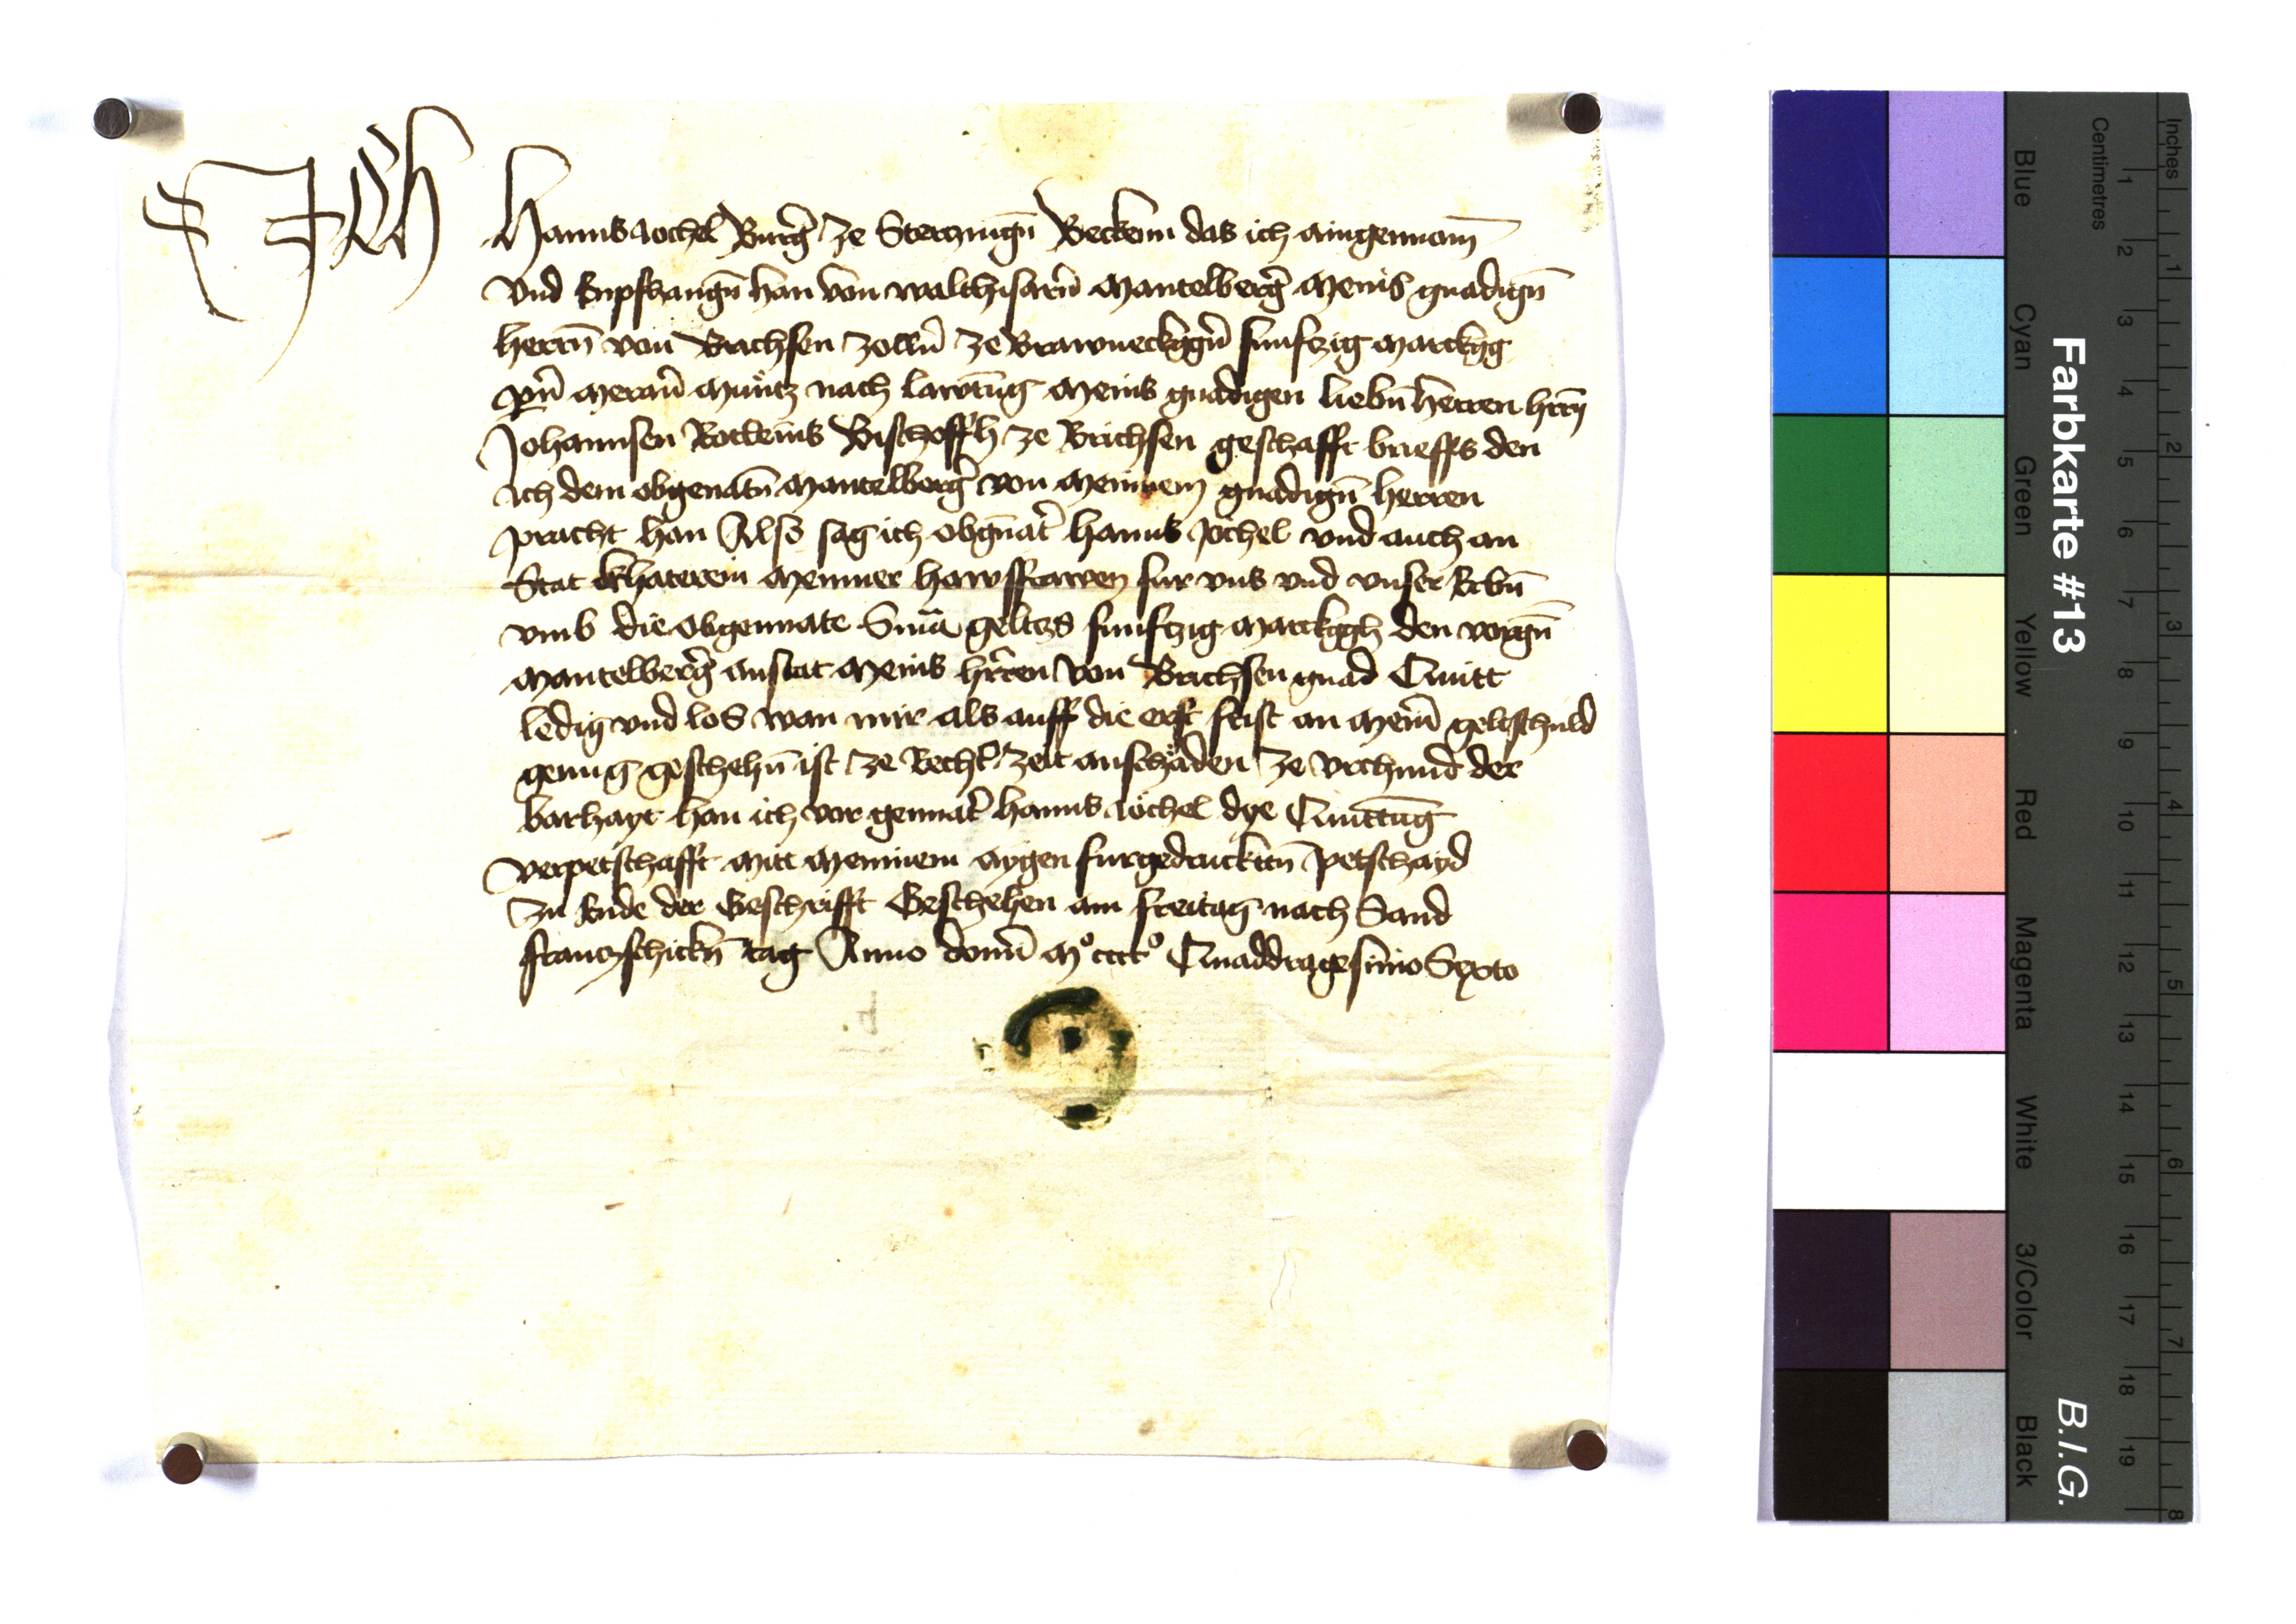 Ich Hanns Jochel Burg̃ ze Sterczingñ Bekenn das ich aingennom̄
Vnd Enpfhangñ han von walthisarñ Mantelberg̃ Meins gnadigñ
herrñ von Brichsen zollñ ze Brawneckgg̃n funfczig Marckgg
Meran̄ Munͤtz nach lawtūg Meins gnadigen liebñ herren hrrñ
Johannsen Rotleins Bischoffh ze Brichsen geschafft brieffs den
ich dem obgenatñ Mantelberg̃ von Meinnem gnadigñ herren
pracht han Also sag ich obgnat̃ hanns Jochel vnd auch an
Stat khaterein Meinner hawsffrawen fur vns vnd vnser Erbñ
vmb die obgennate Sum̄a geltzs funfczig Marckggh den vorgñ
Mantelberg̃ anstat Meins hrren von Brichsen gnad Quitt
ledig vnd los wan mir als auff die frist an Meinr̄ geltschuld
genug geschehñ ist ze Recht̃ zeit anschaͤden ze vrchund der
barhayt han ich vor gennat̃ hanns Jöchel dye Quittūg
verpetschafft Mitt Meinnem aygen furgedrucktñ petschayd
Zu Ende der Geschrifft Geschehen am freitag nach Sand
franczschickñ tag Anno domī Mº ccccº Quaddragesimo Sexto
Farbkarte #13
B.I.G.
Inches
Centimetres
Blue
Cyan
Green
Yellow
Red
Magenta
White
3/Color
Black
1 2 3 4 5 6 7 8 9 10 11 12 13 14 15 16 17 18 19
1 2 3 4 5 6 7 8